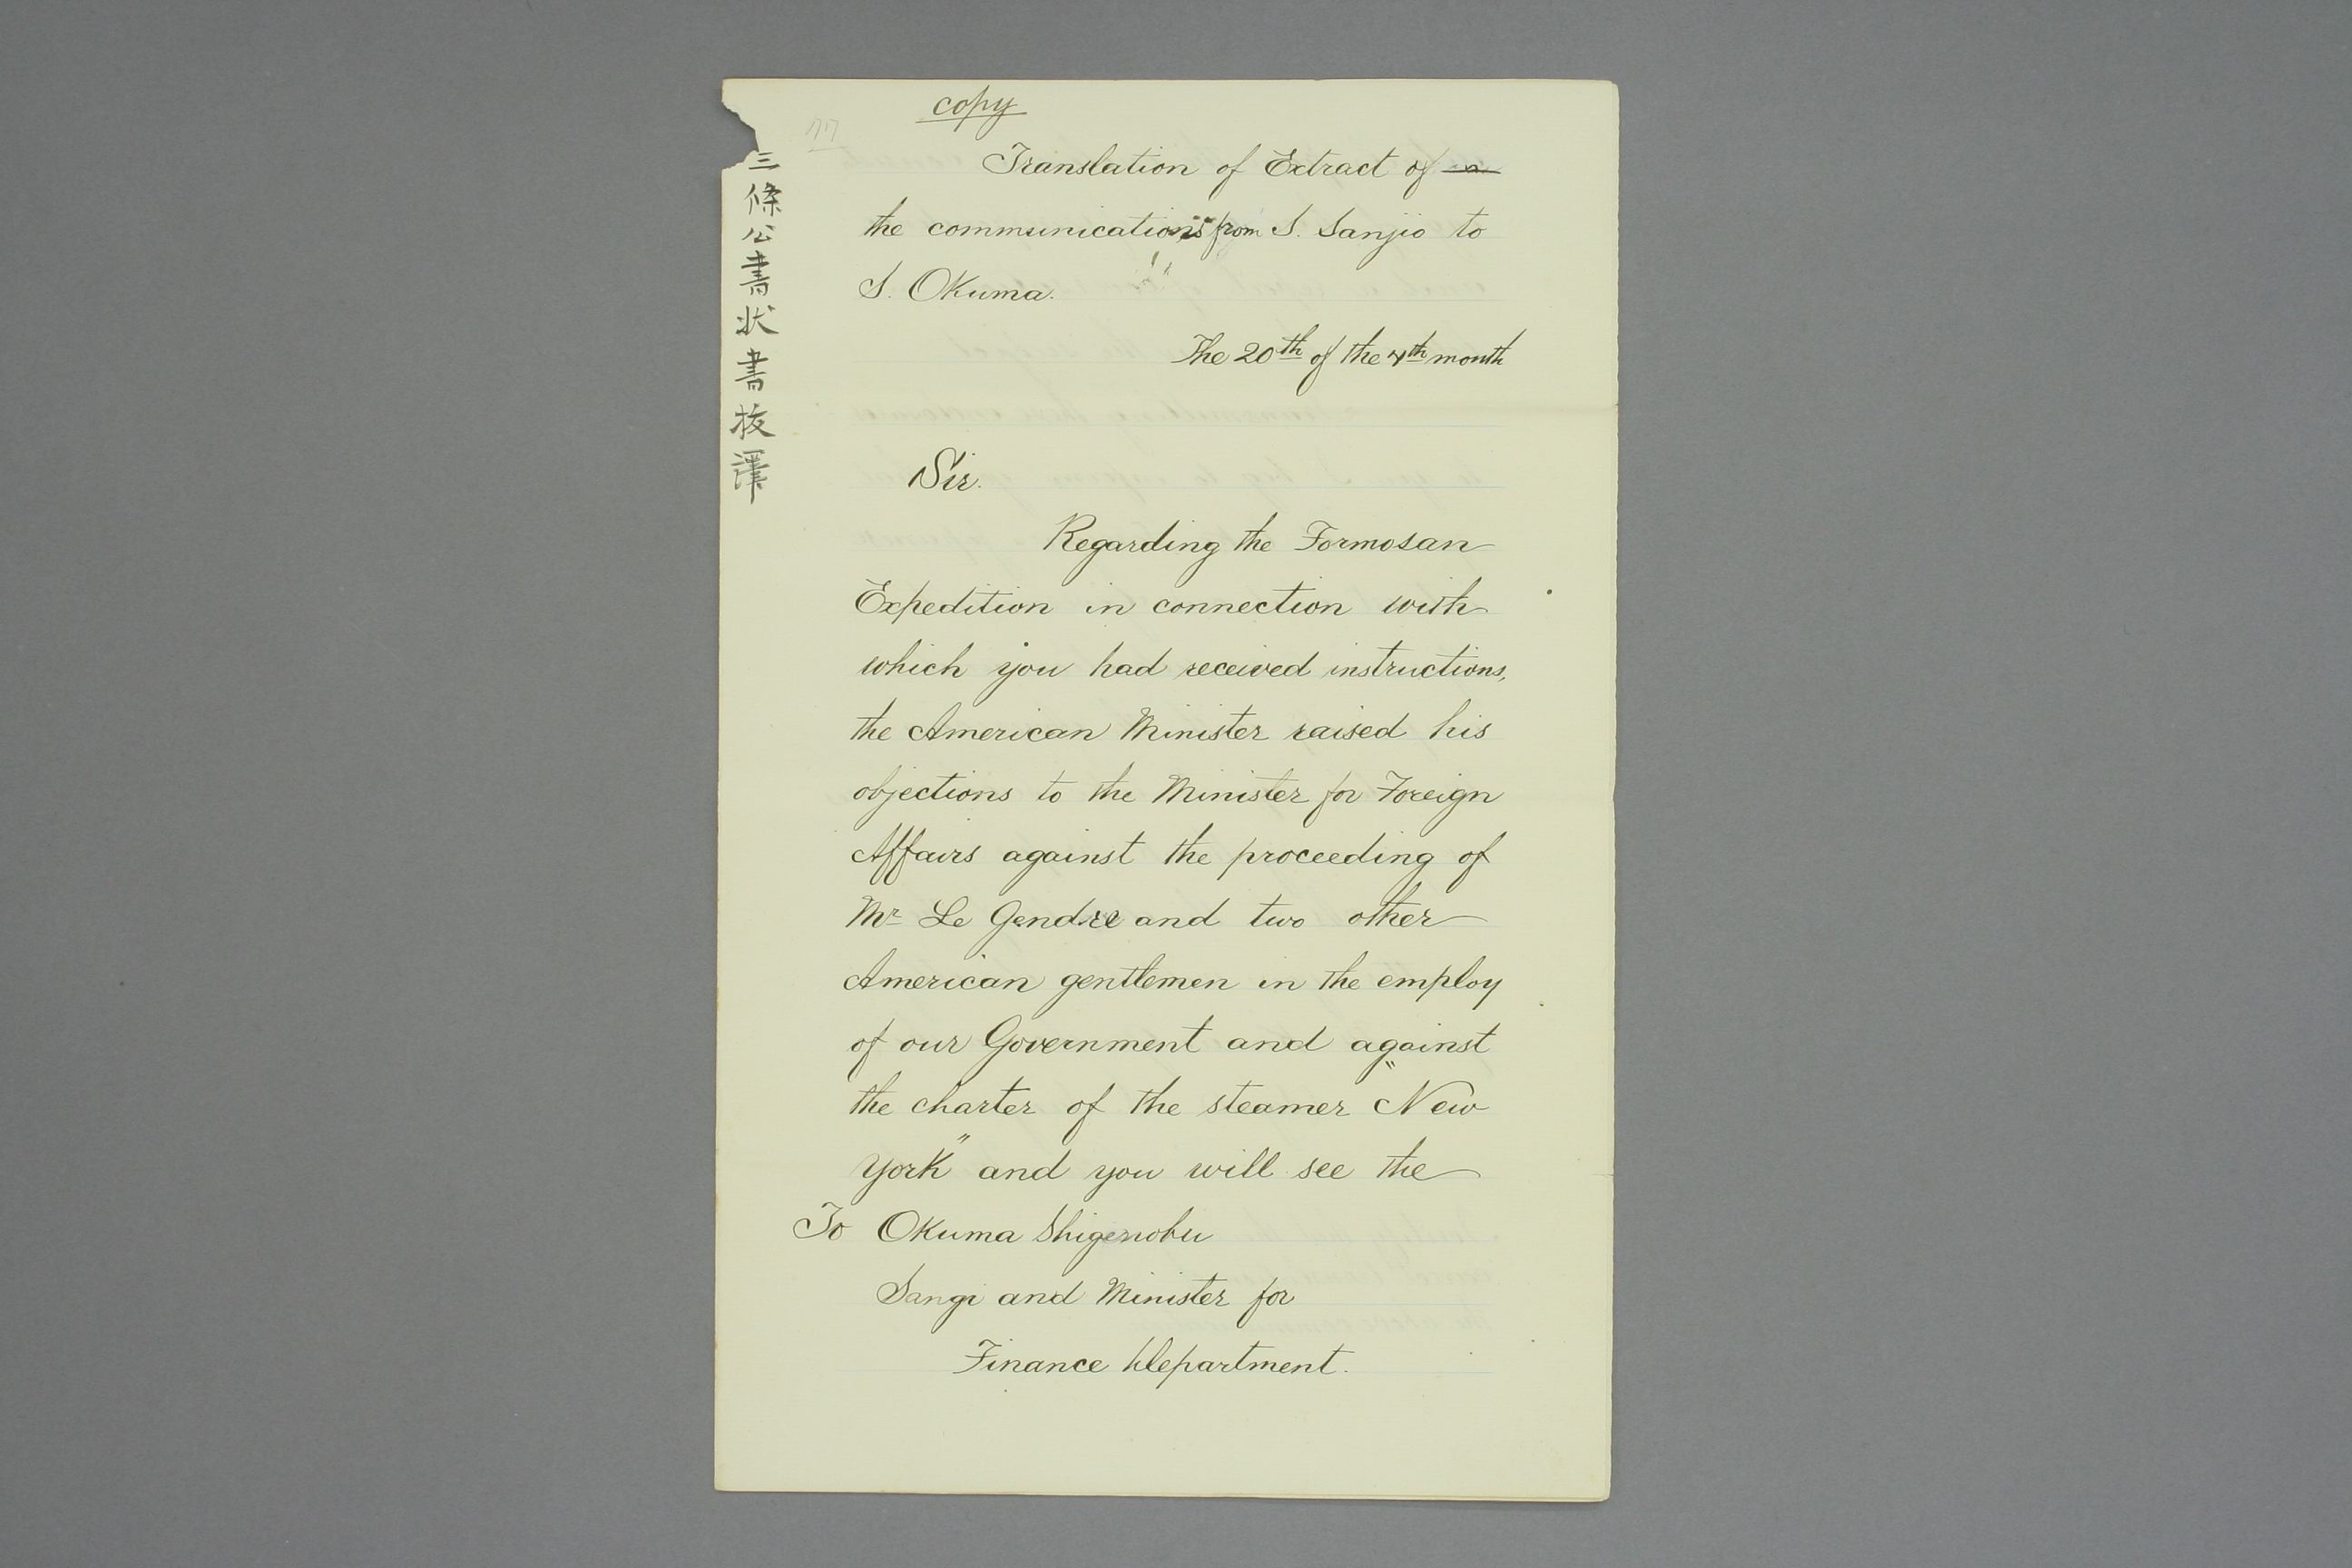 copy
Translation of Extract of
the communications from S. Sanjio to
S. Okuma.
The 20th of the 4th month
Sir.
Regarding the Formosan
Expedition in connection with
which you had received instructions,
the American Minister raised his
objections to the Minister for Foreign
Affairs against the proceeding of
Mr Le Gendre and two other
American gentlemen in the employ
of our Government and against
the charter of the steamer "New
York" and you will see the
To Okuma Shigenobu
Sangi and Minister for
Finance Department.
三條公書状書抜譯